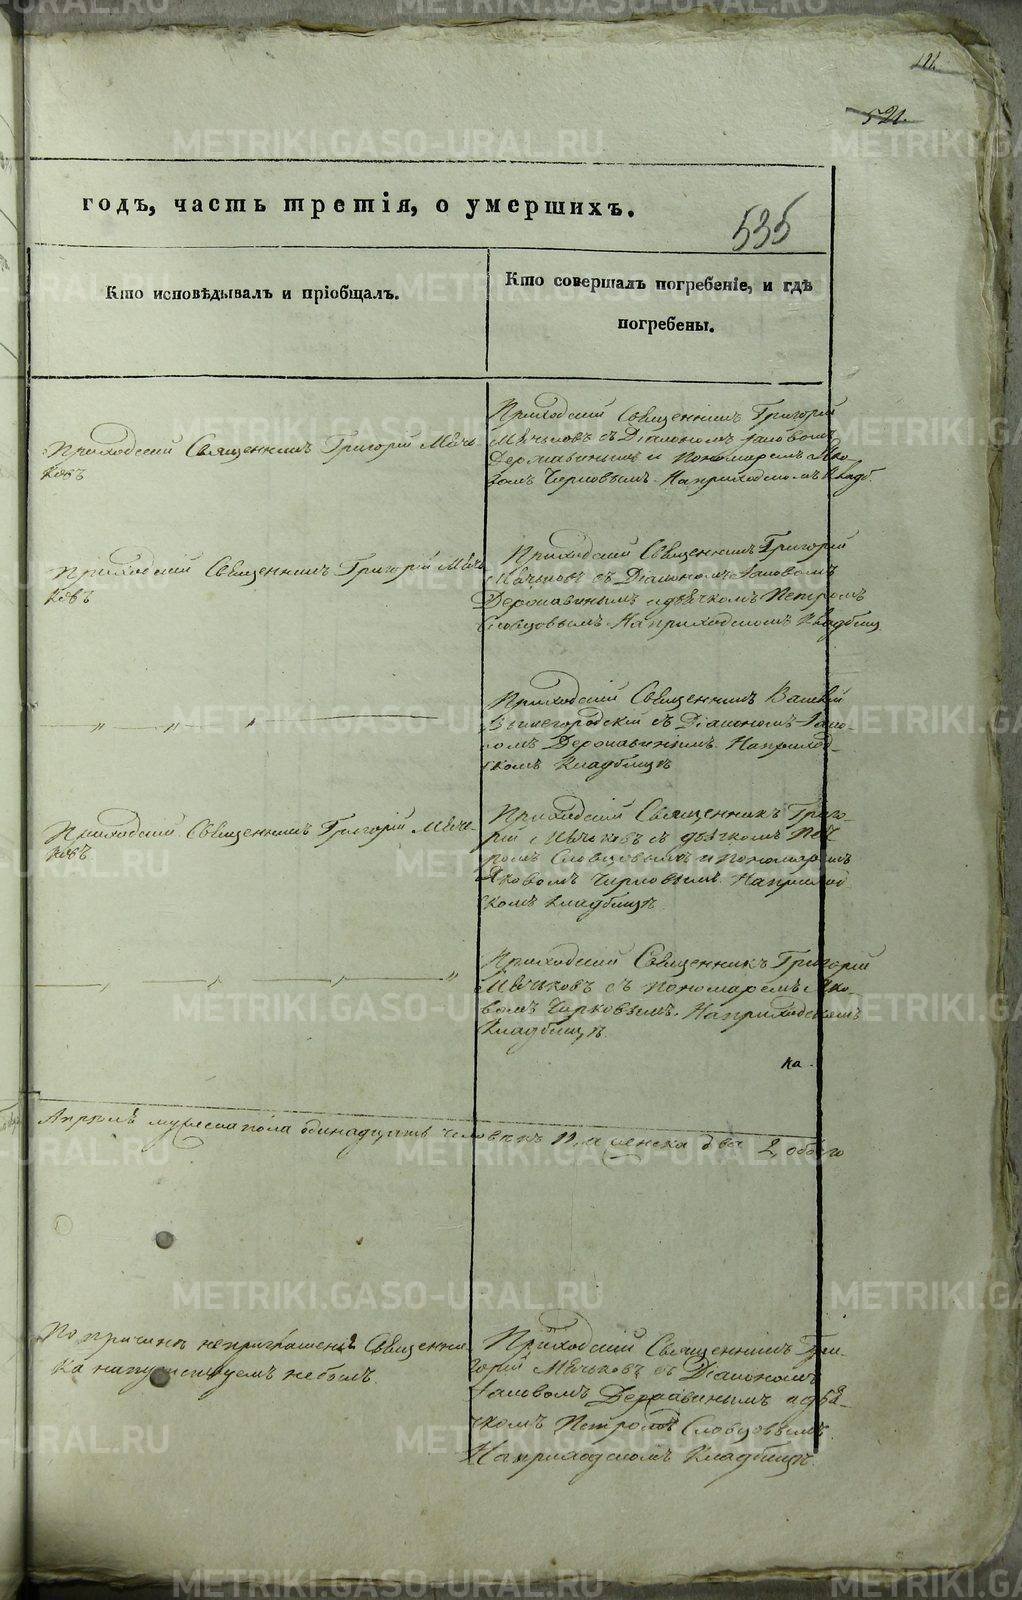 521.
годъ, часть третія, о умершихъ.
535
Кто исповѣдывалъ и пріобщалъ.
Кто совершалъ погребеніе, и гдѣ
погребены.
Приходскій Священникъ Григорій Мѣчь-
ковъ
Приходскій Священникъ Григорій
Мѣчьковъ съ Діакономъ Іаковомъ
Державинымъ и Пономаремъ Яко-
вомъ Чирковымъ. На приходскомъ Кладб.
Приходскій Священникъ Григорій Мѣчь
ковъ
Приходскій Священникъ Григорій
Мѣчьковъ съ Діакономъ Іаковомъ
Державинымъ и дьячкомъ Петромъ
Словцовымъ. На приходскомъ Кладбищ
Приходскій Священникъ Василій
Вышегородскій съ Діакономъ Іако-
вомъ Державинымъ. На приход-
скомъ Кладбищѣ
Приходскій Священникъ Григорій Мѣчь-
ковъ.
Приходскій Священникъ Григо-
рій Мѣчьковъ съ дьячкомъ Пет-
ромъ Словцовымъ и пономаремъ
Яковомъ Чирковымъ. На приход
скомъ кладбищѣ.
Приходскій Священникъ Григорій
Мѣчьковъ съ пономаремъ Яко-
вомъ Чирковымъ. На приходскомъ
Кладбищѣ.
ка
Апрелѣ мужеска пола одинадцать человекъ 11, и женска два 2, обоего
По причинѣ неприглашенія Священни-
ка напутствуемъ небылъ.
Приходскій Священникъ Гри-
горій Мѣчьковъ съ Діакономъ
Іаковомъ Державинымъ и дья-
чкомъ Петромъ Словцовымъ.
На приходскомъ Кладбищѣ.
METRIKI.GASO-URAL.RU